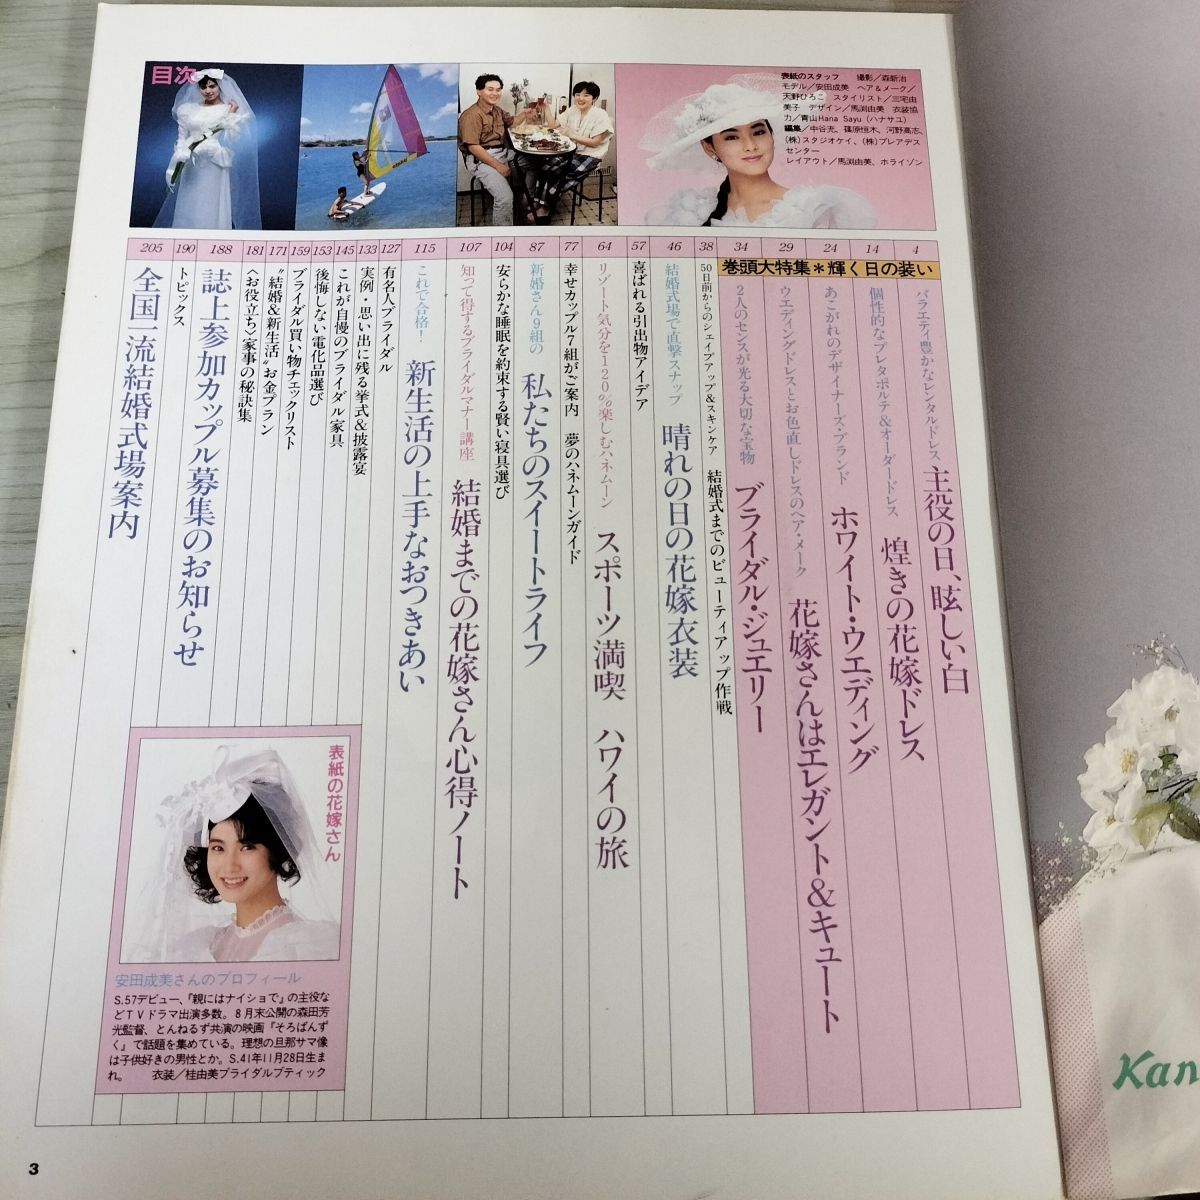 目次
表紙のスタッフ　撮影／森新治
モデル／安田成美　ヘア＆メーク／
天野ひろこ　スタイリスト／三宅由
美子　デザイン／馬渕由美　衣装協
力／青山Hana Sayu（ハナサユ）
編集／中谷充、篠原恒木、河野高志、
（株）スタジオケイ、（株）プレアデス
センター
レイアウト／馬渕由美、ホライゾン
巻頭大特集＊輝く日の装い
4
バラエティ豊かなレンタルドレス 主役の日、眩しい白
14
個性的なプレタポルテ＆オーダードレス 煌きの花嫁ドレス
24
あこがれのデザイナーズ・ブランド ホワイト・ウエディング
29
ウエディングドレスとお色直しドレスのヘア・メーク 花嫁さんはエレガント＆キュート
34
2人のセンスが光る大切な宝物 ブライダル・ジュエリー
38
50日前からのシェイプアップ＆スキンケア 結婚式までのビューティアップ作戦
46
結婚式場で直撃スナップ 晴れの日の花嫁衣装
57
喜ばれる引出物アイデア
64
リゾート気分を120％楽しむハネムーン スポーツ満喫 ハワイの旅
77
幸せカップル7組がご案内 夢のハネムーンガイド
87
新婚さん9組の 私たちのスイートライフ
104
安らかな睡眠を約束する賢い寝具選び
107
知って得するブライダルマナー講座 結婚までの花嫁さん心得ノート
115
これで合格！ 新生活の上手なおつきあい
127
有名人ブライダル
133
実例・思い出に残る挙式＆披露宴
145
これが自慢のブライダル家具
153
後悔しない電化品選び
159
ブライダル買い物チェックリスト
171
“結婚＆新生活”お金プラン
181
〈お役立ち〉家事の秘訣集
188
誌上参加カップル募集のお知らせ
190
トピックス
205
全国一流結婚式場案内
表紙の花嫁さん
安田成美さんのプロフィール
S.57デビュー、「親にはナイショで」の主役な
どTVドラマ出演多数。8月末公開の森田芳
光監督、とんねるず共演の映画「そろばんず
く」で話題を集めている。理想の旦那サマ像
は子供好きの男性とか。S.41年11月28日生ま
れ。　衣装／桂由美ブライダルブティック
3
Kan